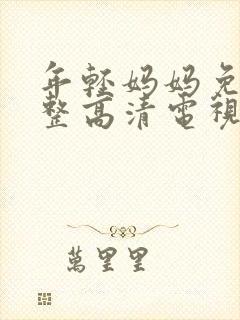 年輕妈妈免
整高清電視
萬里里